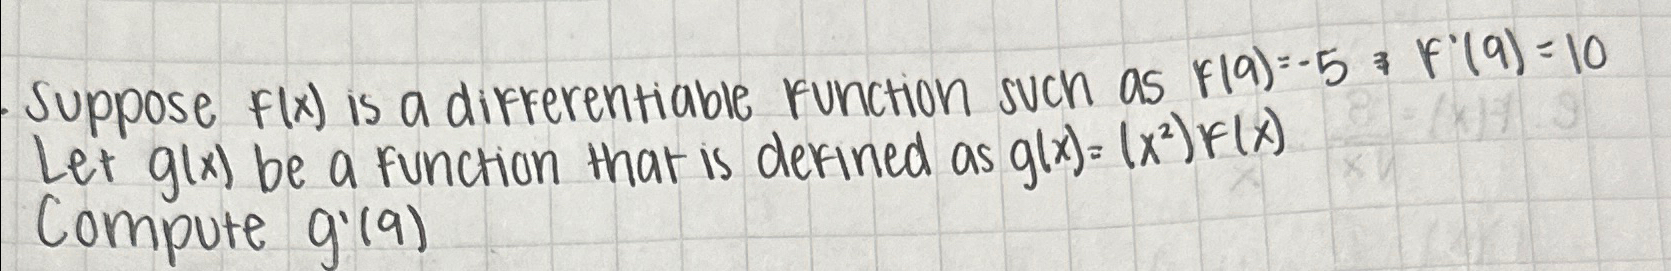 . Suppose f(x) is a differentiable function such as f(9)=-5 & f'(9)=10
Let g(x) be a function that is defined as g(x)=(x²)f(x)
Compute g'(9)